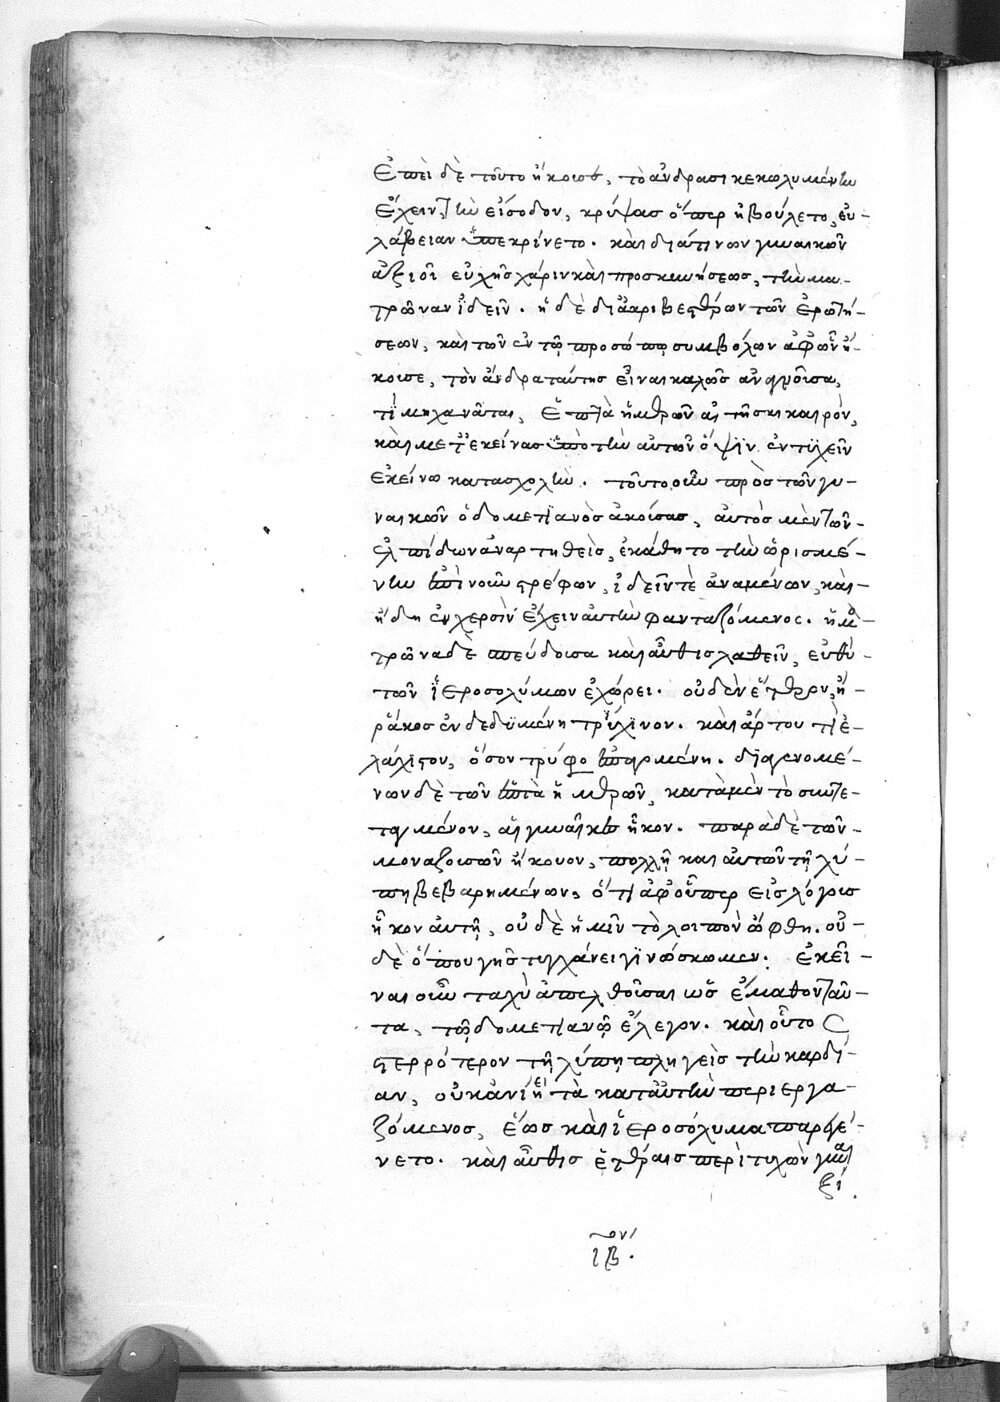 Ἐπεὶ δὲ τοῦτο ἤκουσε, τὸ ἀνδράσι κεκωλυμένην
ἔχειν τὴν εἴσοδον, κρύψας ὅπερ ἠβούλετο, εὐ-
λάβειαν ὑπεκρίνετο. καὶ διά τινων γυναικῶν
ἀξιοῖ εὐχῆς χάριν καὶ προσκυνήσεως, τὴν μα-
τρῶναν ἰδεῖν. ἡ δὲ δι' ἀκριβεστέρων τῶν ἐρωτή-
σεων, καὶ τῶν ἐν τῷ προσώπῳ συμβόλων ἀφ' ὧν ἤ-
κουσε, τὸν ἄνδρα ταύτης εἶναι καλῶς ἀναγνοῦσα,
τί μηχανᾶται, ἑπτὰ ἡμερῶν αἰτήσει καιρόν,
καὶ μετ' ἐκείνας ὑπὸ τὴν αὐτῶν ὄψιν ἐντυχεῖν
ἐκείνω κατασχολήν. τοῦτο οὖν πρὸς τῶν γυ-
ναικῶν ὁ δομετιανὸς ἀκούσας, αὐτὸς μὲν τῶν
ἐλπίδων ἀναρτηθεὶς, ἐκάθητο τὴν ὡρισμέ-
νην ἐπὶ νοῦν στρέφων, ἰδεῖν τὲ ἀναμένων, καὶ
ἤδη ἐν χερσὶν ἔχειν αὐτὴν φανταζόμενος. ἡ μα-
τρῶνα δὲ σπεύδουσα καὶ αὖθις λαθεῖν, εὐθὺ
τῶν ἱεροσολύμων ἐχώρει. οὐδὲν ἕτερον, ἢ
ῥάκος ἐνδεδυμένη τρύχινον. καὶ ἄρτου τι ἐ-
λάχιστον, ὅσον τρύφο ἐπαγομένη. διαγενομέ-
νων δὲ τῶν ἑπτὰ ἡμερῶν, κατὰ μὲν τὸ συντε-
ταγμένον, αἱ γυναῖκες ἧκον. παρὰ δὲ τῶν
μοναζουσῶν ἤκουον, πολλῇ καὶ αὐτῶν τῇ λύ-
πῃ βεβαρημένων, ὅτι ἀφ' οὗπερ εἰς λόγους
ἧκον αὐτῇ, οὐδὲ ἡμῖν τὸ λοιπὸν ὤφθη. οὐ-
δὲ ὅπου γῆς τυγχάνει γινώσκωμεν. ἐκεῖ-
ναι οὖν ταχὺ ἀπελθοῦσαι ὡς ἔμαθον ταῦ-
τα, τῷ δομετιανῷ ἔλεγον. καὶ οὗτος
στερρότερον τῇ λύπῃ πληγεὶς τὴν καρδί-
αν, οὐκ ἀνίει τὰ κατ' αὐτὴν περιεργα-
ζόμενος, ἕως καὶ ἱεροσόλυμα παρεγέ-
νετο. καὶ αὖθις ἑτέραις περιτυχὼν γυναι
ξί.
ιβον.